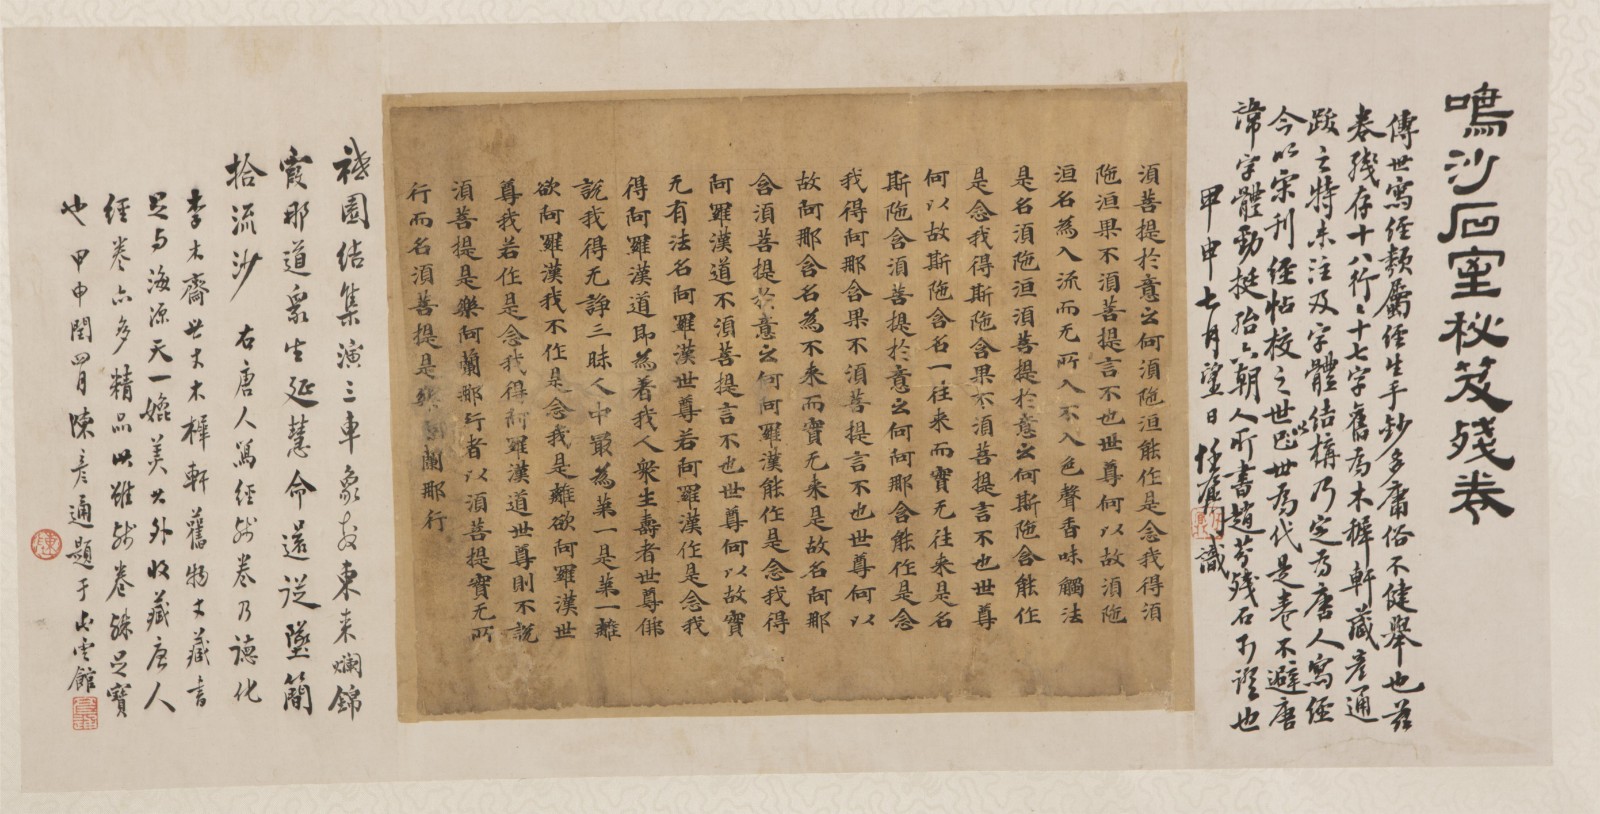 鳴沙石室秘笈殘卷
傳世寫經類屬經生手鈔多庸俗不健舉也茲
卷殘存十八行〻十七字舊為木樨軒藏彥通
跋之特未注及字體結構乃定為唐人寫經
今以宋刊經帖校之世以卋世為代是卷不避唐
諱字體勁挺殆六朝人所書趙芬殘石可證也
甲申七月望日 識
須菩提於意云何須陁洹能作是念我得須
陁洹果不須菩提言不也世尊何以故須陁
洹名為入流而无所入不入色聲香味觸法
是名須陁洹須菩提於意云何斯陁含能作
是念我得斯陁含果不須菩提言不也世尊
何以故斯陁含名一往來而實无往來是名
斯陁含須菩提於意云何阿那含能作是念
我得阿那含果不須菩提言不也世尊何以
故阿那含名為不来而實无来是故名阿那
含須菩提於意云何阿羅漢能作是念我得
阿羅漢道不須菩提言不也世尊何以故實
无有法名阿羅漢世尊若阿羅漢作是念我
得阿羅漢道即為著我人衆生壽者世尊佛
說我得无諍三昧人中最為苐一是苐一離
欲阿羅漢我不作是念我是離欲阿羅漢世
尊我若作是念我得阿羅漢道世尊則不說
須菩提是樂阿蘭那行者以須菩提實无所
行而名須菩提是樂阿蘭那行
祇園結集演三車象教東来斕錦
霞那道衆生延慧命還從墜簡
拾流沙 右唐人寫經殘卷乃德化
李木齋世丈木樨軒舊物丈藏書
足與海源天一媲美其外收藏唐人
經卷亦多精品此雖殘卷殊足寶
也 甲申閏四月陳彥通題于 雲館